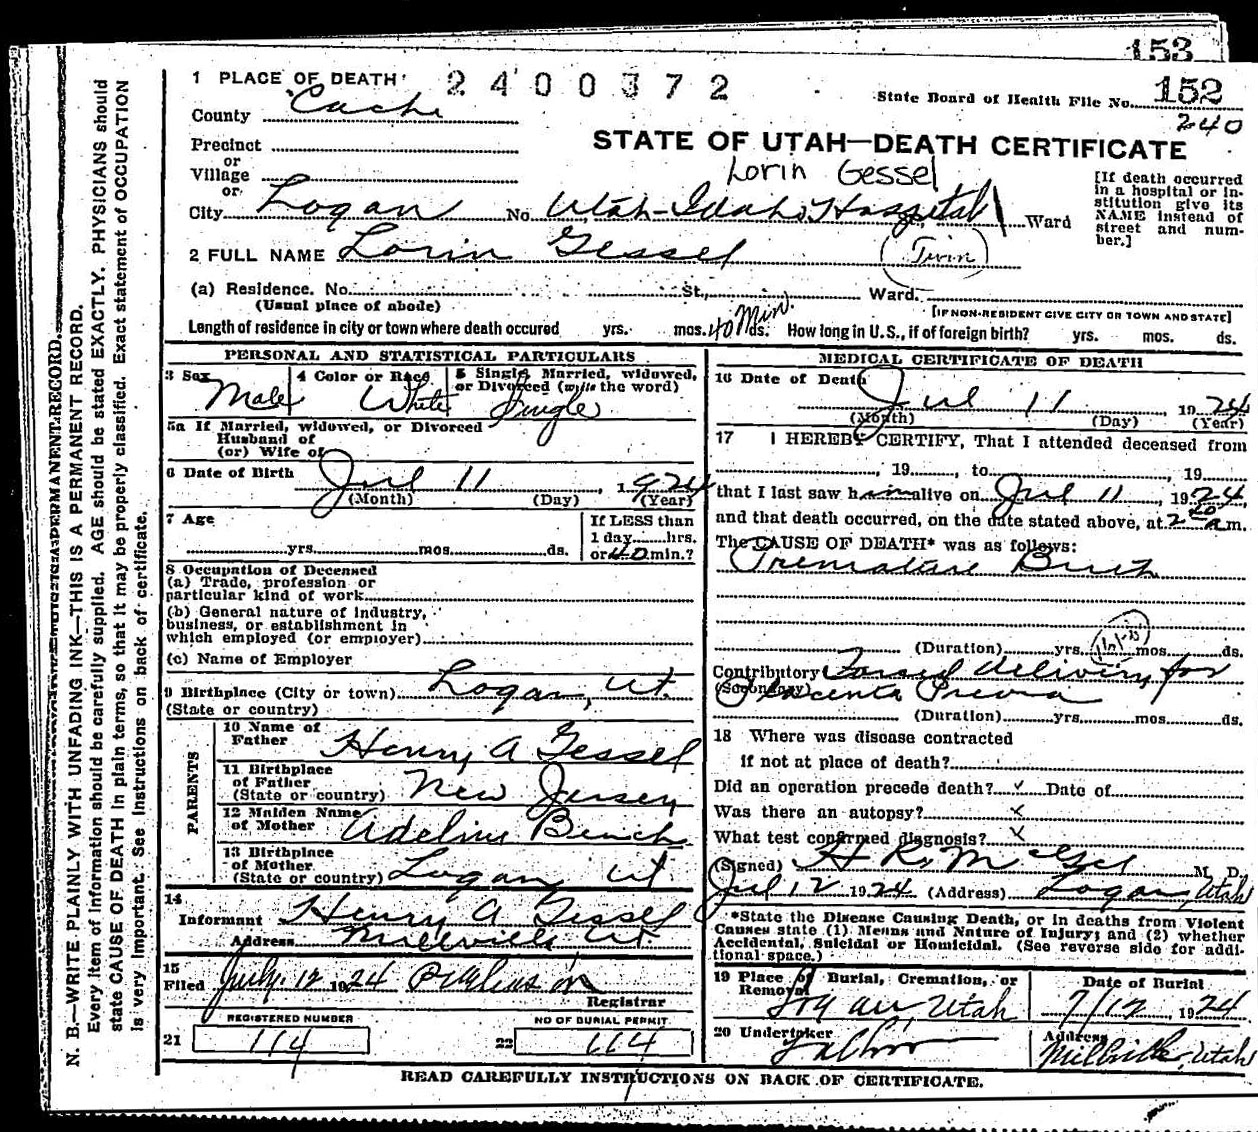 153
1 PLACE OF DEATH 2400372
State Board of Health File No. 152
240
County Cache
STATE OF UTAH—DEATH CERTIFICATE
Precinct
or
Village
or
Lorin Gessel
City Logan No. Utah-Idaho Hospital Ward
[If death occurred in a hospital or institution give its NAME instead of street and number.]
2 FULL NAME Lorin Gessel (Twin)
(a) Residence. No. St., Ward.
(Usual place of abode)
[IF NON-RESIDENT GIVE CITY OR TOWN AND STATE]
Length of residence in city or town where death occured yrs. mos. 40 Min. ds. How long in U.S., if of foreign birth? yrs. mos. ds.
PERSONAL AND STATISTICAL PARTICULARS
3 Sex Male
4 Color or Race White
5 Single, Married, widowed, or Divorced (write the word) Single
5a If Married, widowed, or Divorced
Husband of
(or) Wife of
6 Date of Birth Jul 11, 1924
(Month) (Day) (Year)
7 Age yrs. mos. ds.
If LESS than
1 day hrs.
or 40 min.?
8 Occupation of Deceased
(a) Trade, profession or
particular kind of work
(b) General nature of Industry,
business, or establishment in
which employed (or employer)
(c) Name of Employer
9 Birthplace (City or town) Logan, Ut.
(State or country)
PARENTS
10 Name of Father Henry A Gessel
11 Birthplace of Father New Jersey
(State or country)
12 Maiden Name of Mother
13 Birthplace of Mother Logan, Ut
(State or country)
14
Informant Henry A Gessel
Address Millville Ut.
15
Filed July 12 1924
Registrar
REGISTERED NUMBER
21 114
NO OF BURIAL PERMIT
22 114
MEDICAL CERTIFICATE OF DEATH
16 Date of Death Jul 11, 1924
(Month) (Day) (Year)
17 I HEREBY CERTIFY, That I attended deceased from
, 19 , to , 19
that I last saw him alive on Jul 11, 1924,
and that death occurred, on the date stated above, at 2 20 a m.
The CAUSE OF DEATH* was as follows:
Premature Birth
(Duration) yrs. mos. ds.
Contributory Forced delivery for
(Secondary) Placenta Previa
(Duration) yrs. mos. ds.
18 Where was disease contracted
if not at place of death?
Did an operation precede death? Date of
Was there an autopsy? x
What test confirmed diagnosis? x
(Signed) M. D.
Jul 12 1924 (Address) Logan, Utah
*State the Disease Causing Death, or in deaths from Violent
Causes state (1) Means and Nature of Injury; and (2) whether
Accidental, Suicidal or Homicidal. (See reverse side for addi-
tional space.)
19 Place of Burial, Cremation, or Removal Logan, Utah
Date of Burial 7/12, 1924
20 Undertaker
Address Millville, Utah
READ CAREFULLY INSTRUCTIONS ON BACK OF CERTIFICATE.
N. B.—WRITE PLAINLY WITH UNFADING INK—THIS IS A PERMANENT RECORD.
Every item of information should be carefully supplied. AGE should be stated EXACTLY. PHYSICIANS should
state CAUSE OF DEATH in plain terms, so that it may be properly classified. Exact statement of OCCUPATION
is very important. See instructions on back of certificate.